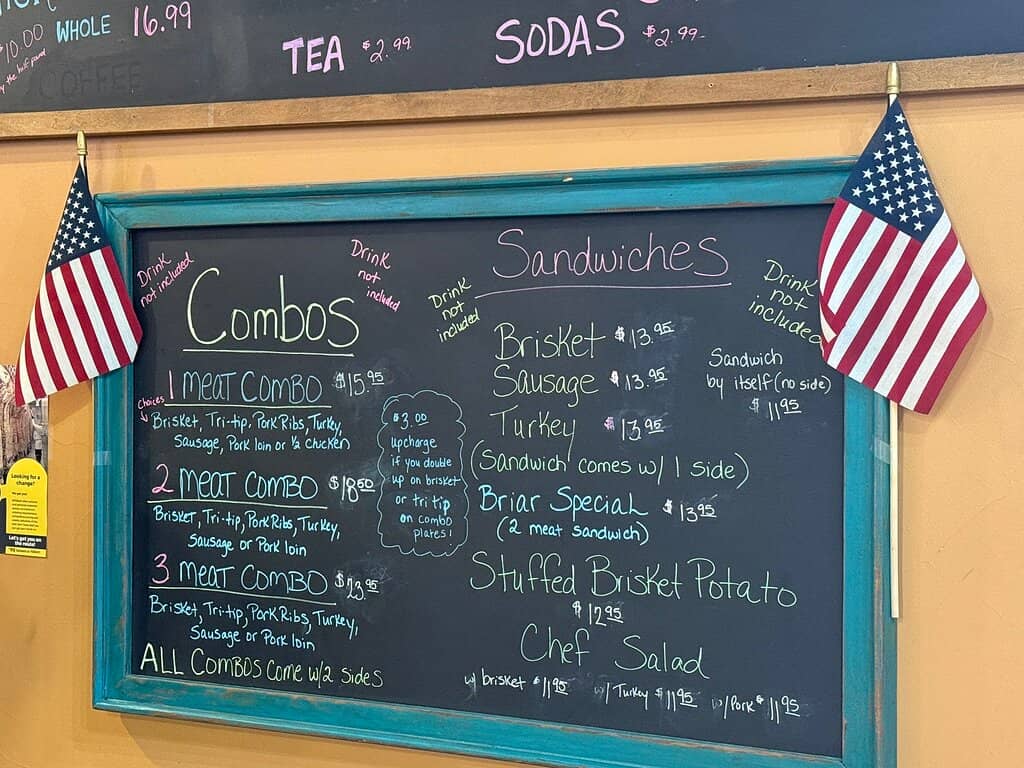 $10.00
WHOLE 16.99
TEA $2.99
SODAS $2.99
COFFEE
Drink
not included
Drink
not
included
Combos
1 MEAT COMBO $15.95
Choices
Brisket, Tri-tip, Pork Ribs, Turkey,
Sausage, Pork loin or 1/2 chicken
2 MEAT COMBO $18.50
Brisket, Tri-tip, Pork Ribs, Turkey,
Sausage or Pork loin
3 MEAT COMBO $23.95
Brisket, Tri-tip, Pork Ribs, Turkey,
Sausage or Pork loin
ALL COMBOS COME W/2 SIDES
$3.00
upcharge
if you double
up on brisket
or tri tip
on combo
plates!
Drink
not
included
Sandwiches
Drink
not
included
Brisket $13.95
Sausage $13.95
Turkey $13.95
(Sandwich comes w/ 1 side)
Sandwich
by itself (no side)
$11.95
Briar Special $13.95
(2 meat sandwich)
Stuffed Brisket Potato
$12.95
Chef Salad
w/ brisket $11.95 w/ Turkey $11.95 w/Pork $11.95
Looking for a
change?